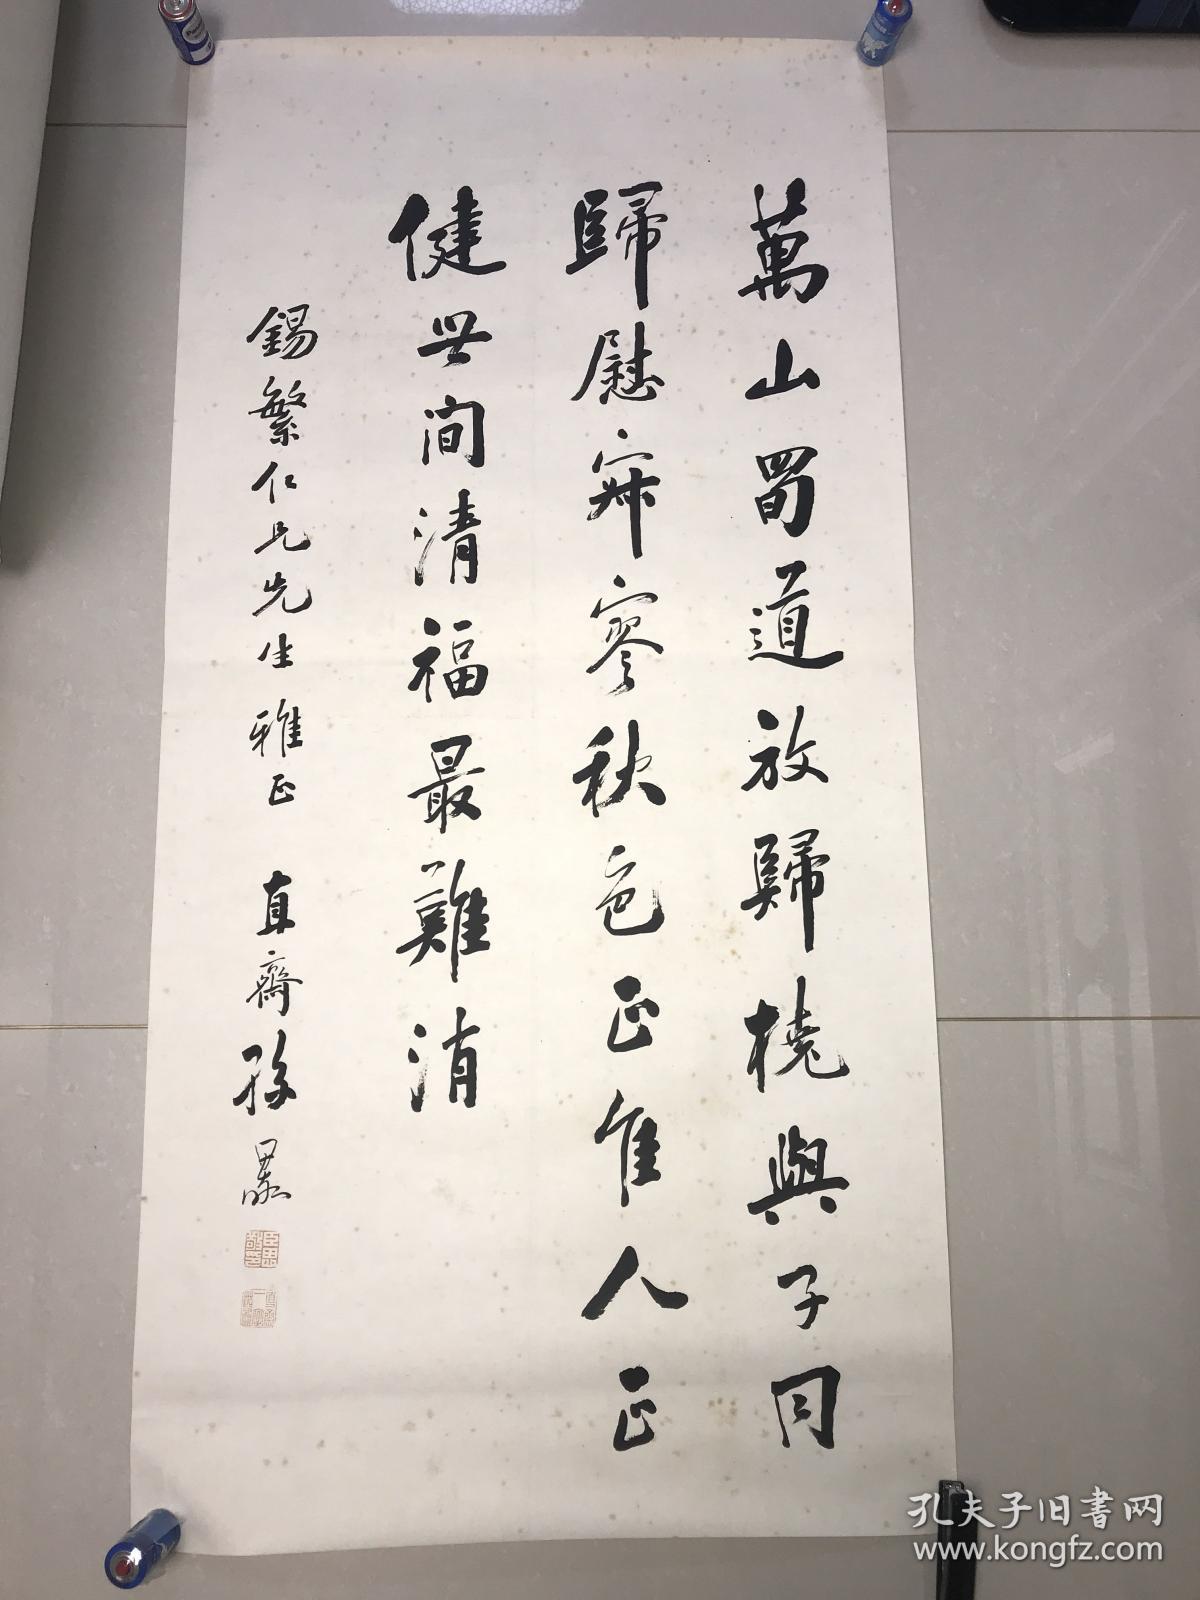 萬山蜀道放歸橈與子同
歸慰寂寥秋色正佳人正
健世間清福最難消
錫繁仁兄先生雅正 直齋孫
孔夫子旧书网
www.kongfz.com